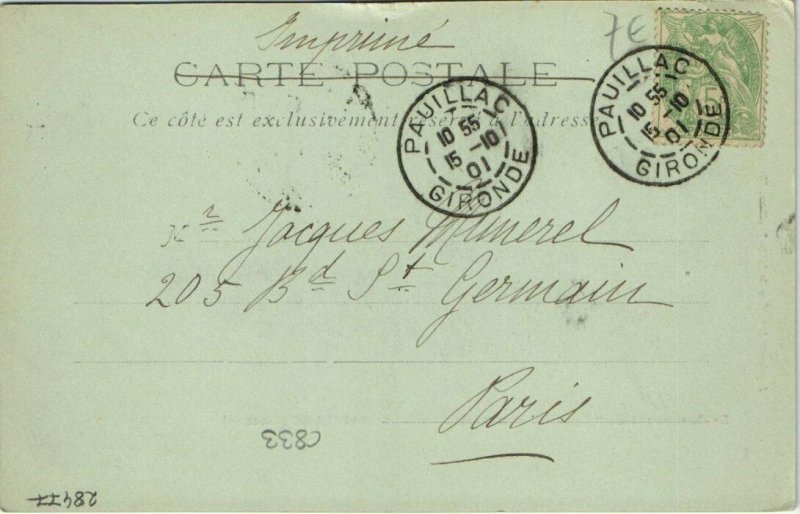 Imprimé
7€
CARTE POSTALE
Ce côté est exclusivement réservé à l'adresse
PAUILLAC
10 55
15 -10
01
GIRONDE
PAUILLAC
10 55
15 -10
01
GIRONDE
5
Mr Jacques Munerel
205 Bd St Germain
Paris
C833